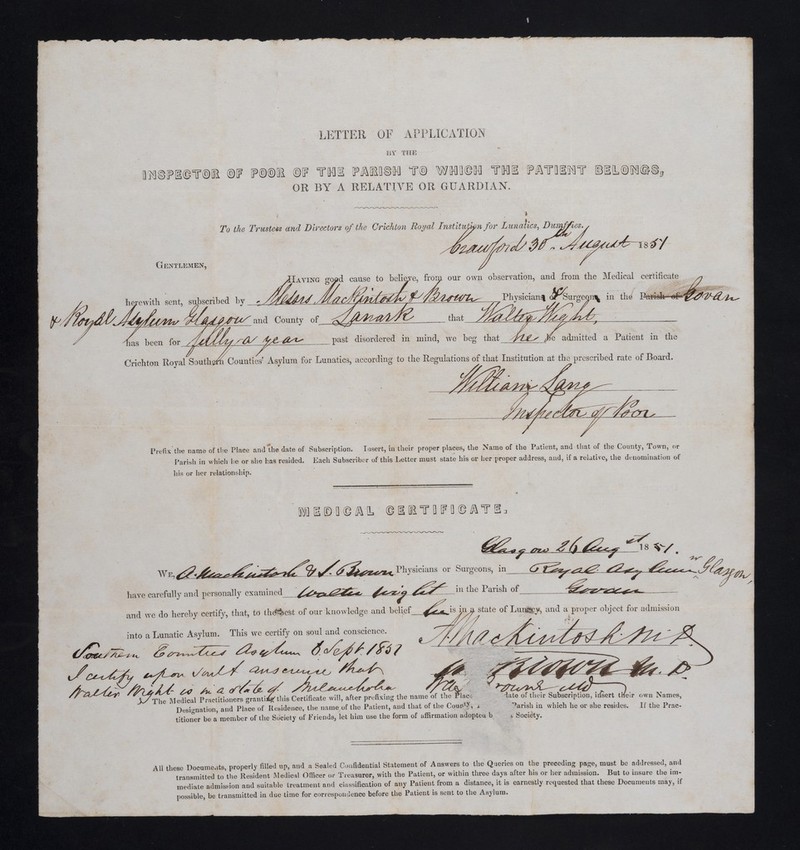 LETTER OF APPLICATION
BY THE
INSPECTOR OF POOR OF THE PARISH TO WHICH THE PATIENT BELONGS,
OR BY A RELATIVE OR GUARDIAN.
To the Trustees and Directors of the Crichton Royal Institution for Lunatics, Dumfries.
Crawford 30th August 1851
GENTLEMEN,
HAVING good cause to believe, from our own observation, and from the Medical certificate
herewith sent, subscribed by Messrs Mackintosh & Brown Physicians & Surgeons, in the Parish of Govan
& Royal Asylum Glasgow and County of Lanark that Walter Wight,
has been for fully a year past disordered in mind, we beg that he be admitted a Patient in the
Crichton Royal Southern Counties' Asylum for Lunatics, according to the Regulations of that Institution at the prescribed rate of Board.
William Lang
Inspector of Poor
Prefix the name of the Place and the date of Subscription. Insert, in their proper places, the Name of the Patient, and that of the County, Town, or
Parish in which he or she has resided. Each Subscriber of this Letter must state his or her proper address, and, if a relative, the denomination of
his or her relationship.
MEDICAL CERTIFICATE.
Glasgow 26 Augst 1851.
WE, A. Mackintosh & J. Brown Physicians or Surgeons, in Royal Asylum nr Glasgow,
have carefully and personally examined Walter Wight in the Parish of Govan
and we do hereby certify, that, to the best of our knowledge and belief he is in a state of Lunacy, and a proper object for admission
into a Lunatic Asylum. This we certify on soul and conscience.
A Mackintosh M.D.
Southern Counties Asylum 8 Sept 1851
Brown M.D.
I certify upon Soul & conscience that
Walter Wight is in a state of Melancholia
The Medical Practitioners granting this Certificate will, after prefixing the name of the Place date of their Subscription, insert their own Names,
Designation, and Place of Residence, the name of the Patient, and that of the County, Parish in which he or she resides. If the Prac-
titioner be a member of the Society of Friends, let him use the form of affirmation adopted b Society.
All these Documents, properly filled up, and a Sealed Confidential Statement of Answers to the Queries on the preceding page, must be addressed, and
transmitted to the Resident Medical Officer or Treasurer, with the Patient, or within three days after his or her admission. But to insure the im-
mediate admission and suitable treatment and classification of any Patient from a distance, it is earnestly requested that these Documents may, if
possible, be transmitted in due time for correspondence before the Patient is sent to the Asylum.